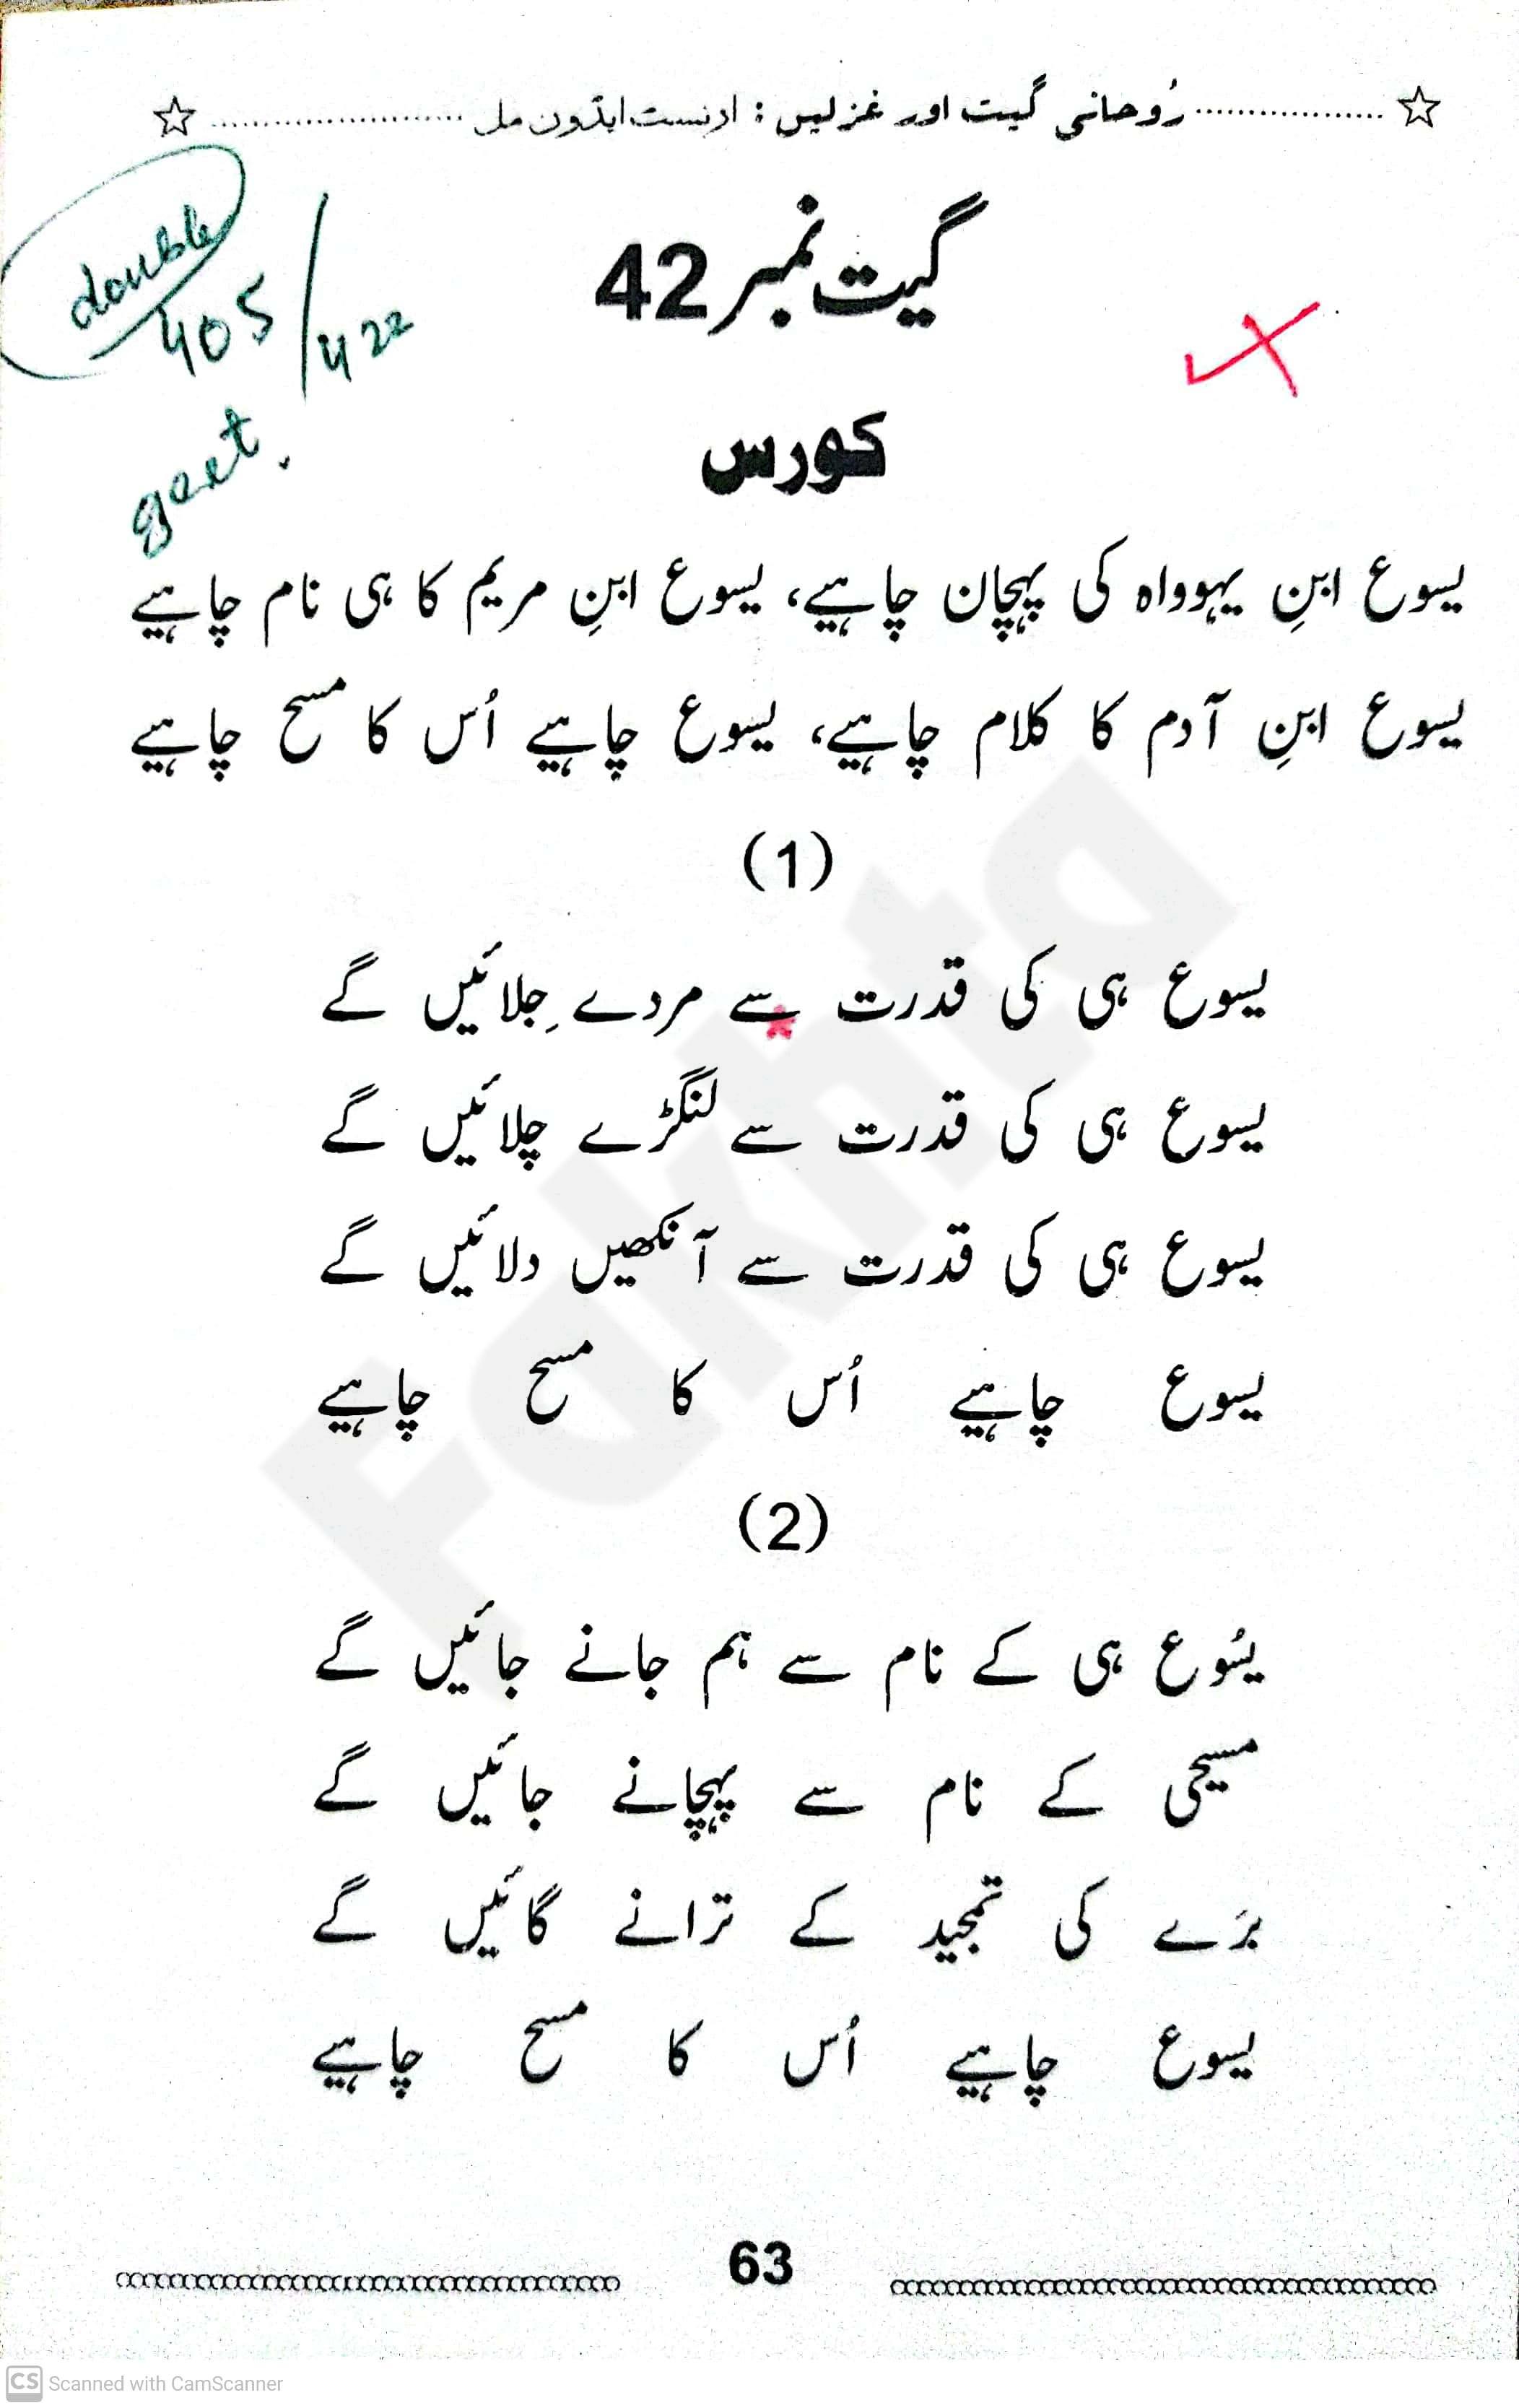 رُوحانی گیت اور غزلیں : ارنسٹ ایڈون مل
گیت نمبر 42
double
405/422
geet.
کورس
یسوع ابنِ یہوواہ کی پہچان چاہیے، یسوع ابنِ مریم کا ہی نام چاہیے
یسوع ابنِ آدم کا کلام چاہیے، یسوع چاہیے اُس کا مسح چاہیے
(1)
یسوع ہی کی قدرت سے مردے جِلائیں گے
یسوع ہی کی قدرت سے لنگڑے چلائیں گے
یسوع ہی کی قدرت سے آنکھیں دلائیں گے
یسوع چاہیے اُس کا مسح چاہیے
(2)
یسُوع ہی کے نام سے ہم جانے جائیں گے
مسیحی کے نام سے پہچانے جائیں گے
برَے کی تمجید کے ترانے گائیں گے
یسوع چاہیے اُس کا مسح چاہیے
63
Fakhta
CS Scanned with CamScanner